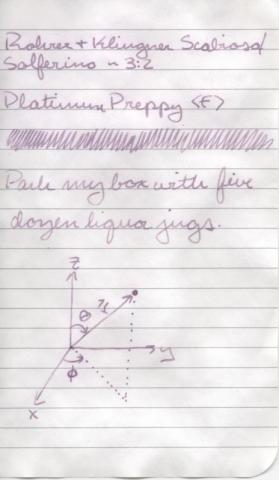 Rohrer + Klingner Scabiosa/
Solferino ~ 3:2
Platinum Preppy <F>
Pack my box with five
dozen liquor jugs.
z
r
θ
y
ϕ
x